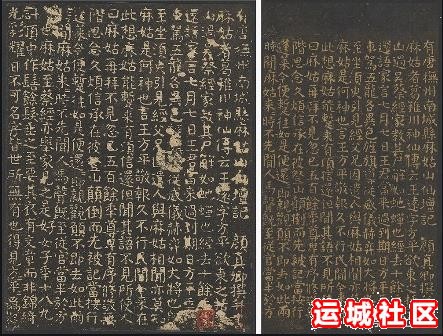 有唐撫州南城縣麻姑山仙壇記 顏真卿撰
麻姑者葛稚川神仙傳云王遠字方平欲東之
山過吳蔡經家教其尸解如蛇蟬也經去十餘
還語家言七月七日王君當來過到期日方平
車駕五龍各異色旌旗導從威儀赫弈如大將也
至坐須臾引見經父兄因遣人與麻姑相聞亦莫
麻姑是何神也言王方平敬報久不行民間今來在
此想麻姑能暫來有頃信還但聞其語不見所使人
曰麻姑再拜不見忽已五百餘年尊卑有序修敬無
階思念久煩信承在彼登山顛倒而先被記當按行
蓬萊今便暫往如是便還還即親觀願不即去如此
時間麻姑來來時不先聞人馬聲既至從官當半於方
也麻姑至蔡經亦舉家見之是好女子年十八九
頂中作髻餘髮垂之至腰其衣有文章而非錦綺
光彩耀日不可名字皆世所無有也得見方平
有唐撫州南城縣麻姑山仙壇記
麻姑者葛稚川神仙傳云王遠字方平欲
山過吳蔡經家教其尸解如蛇蟬也經去
還語家言七月七日王君當來過到期日
車駕五龍各異色旌旗導從威儀赫弈如
至坐須臾引見經父兄因遣人與麻姑相
麻姑是何神也言王方平敬報久不行民
此想麻姑能暫來有頃信還但聞其語不
曰麻姑再拜不見忽已五百餘年尊卑有
階思念久煩信承在彼登山顛倒而先被
蓬萊今便暫往如是便還還即親觀願不
時間麻姑來來時不先聞人馬聲既至從
运城社区